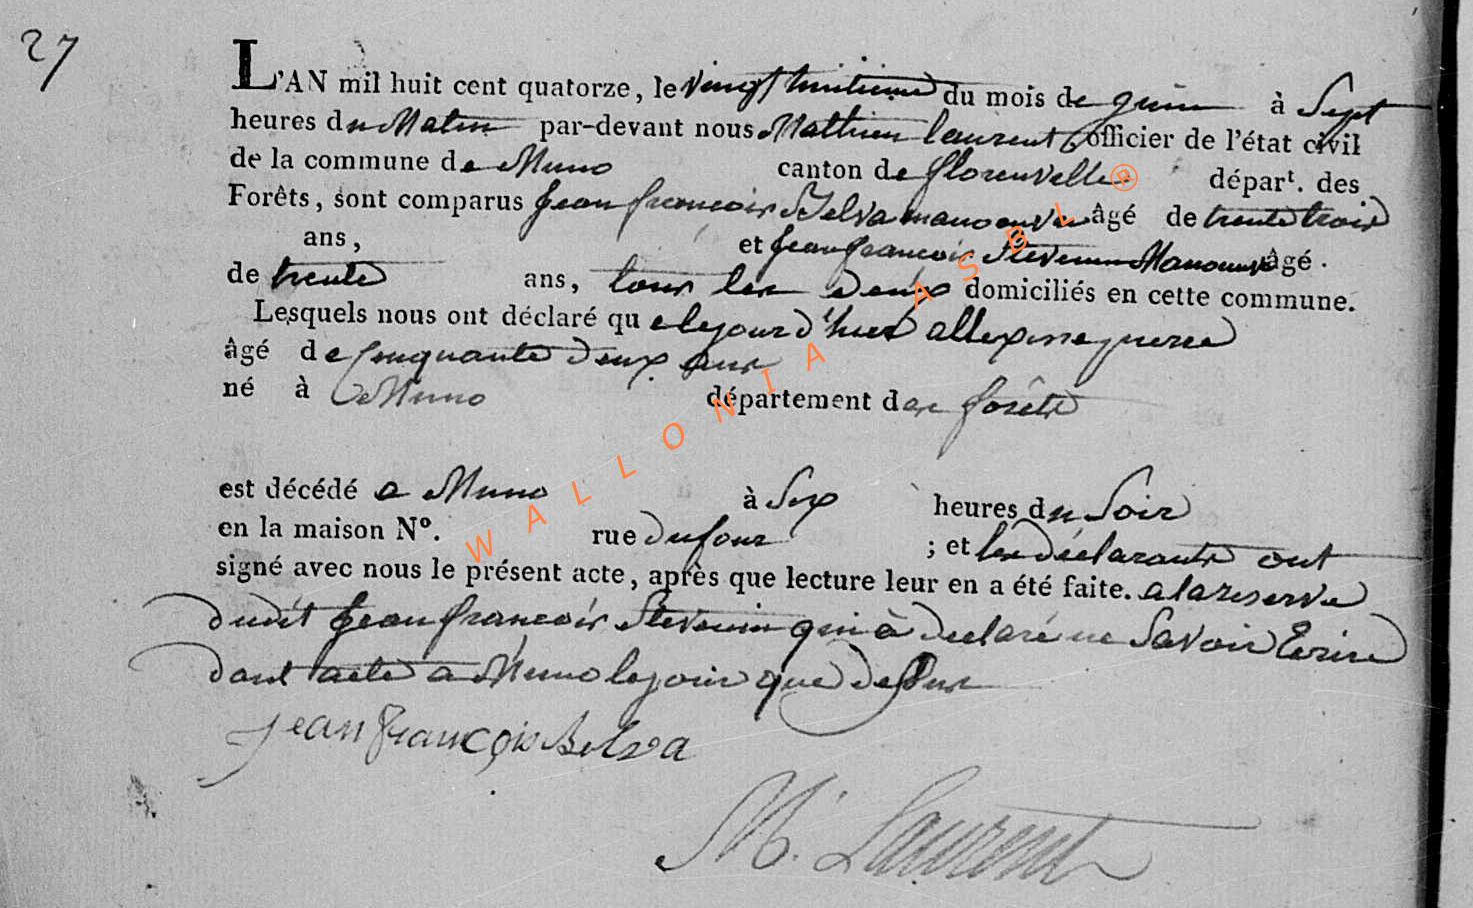 27
L'AN mil huit cent quatorze, le vingt huitieme du mois de juin à Sept
heures du Matin par-devant nous Mathieu laurent officier de l'état civil
de la commune de Muno canton de florenville départ. des
Forêts, sont comparus jean françois Belva manoeuvre âgé de trente trois
ans, et jean francois Stevenin Manouvre âgé
de trente ans, tous les deux domiciliés en cette commune.
Lesquels nous ont déclaré que le jour d'hier
âgé de Cinquante deux ans
né à Muno département des forêts
est décédé a Muno à Six heures du Soir
en la maison N°. rue du four ; et les déclarants ont
signé avec nous le présent acte, après que lecture leur en a été faite. a la reserve
dudit jean françois Stevenin qui à declaré ne Savoir Ecrire
dont acte a Muno le jour que dessus
jean françois Belva
M. Laurent
WALLONIA ASBL ®